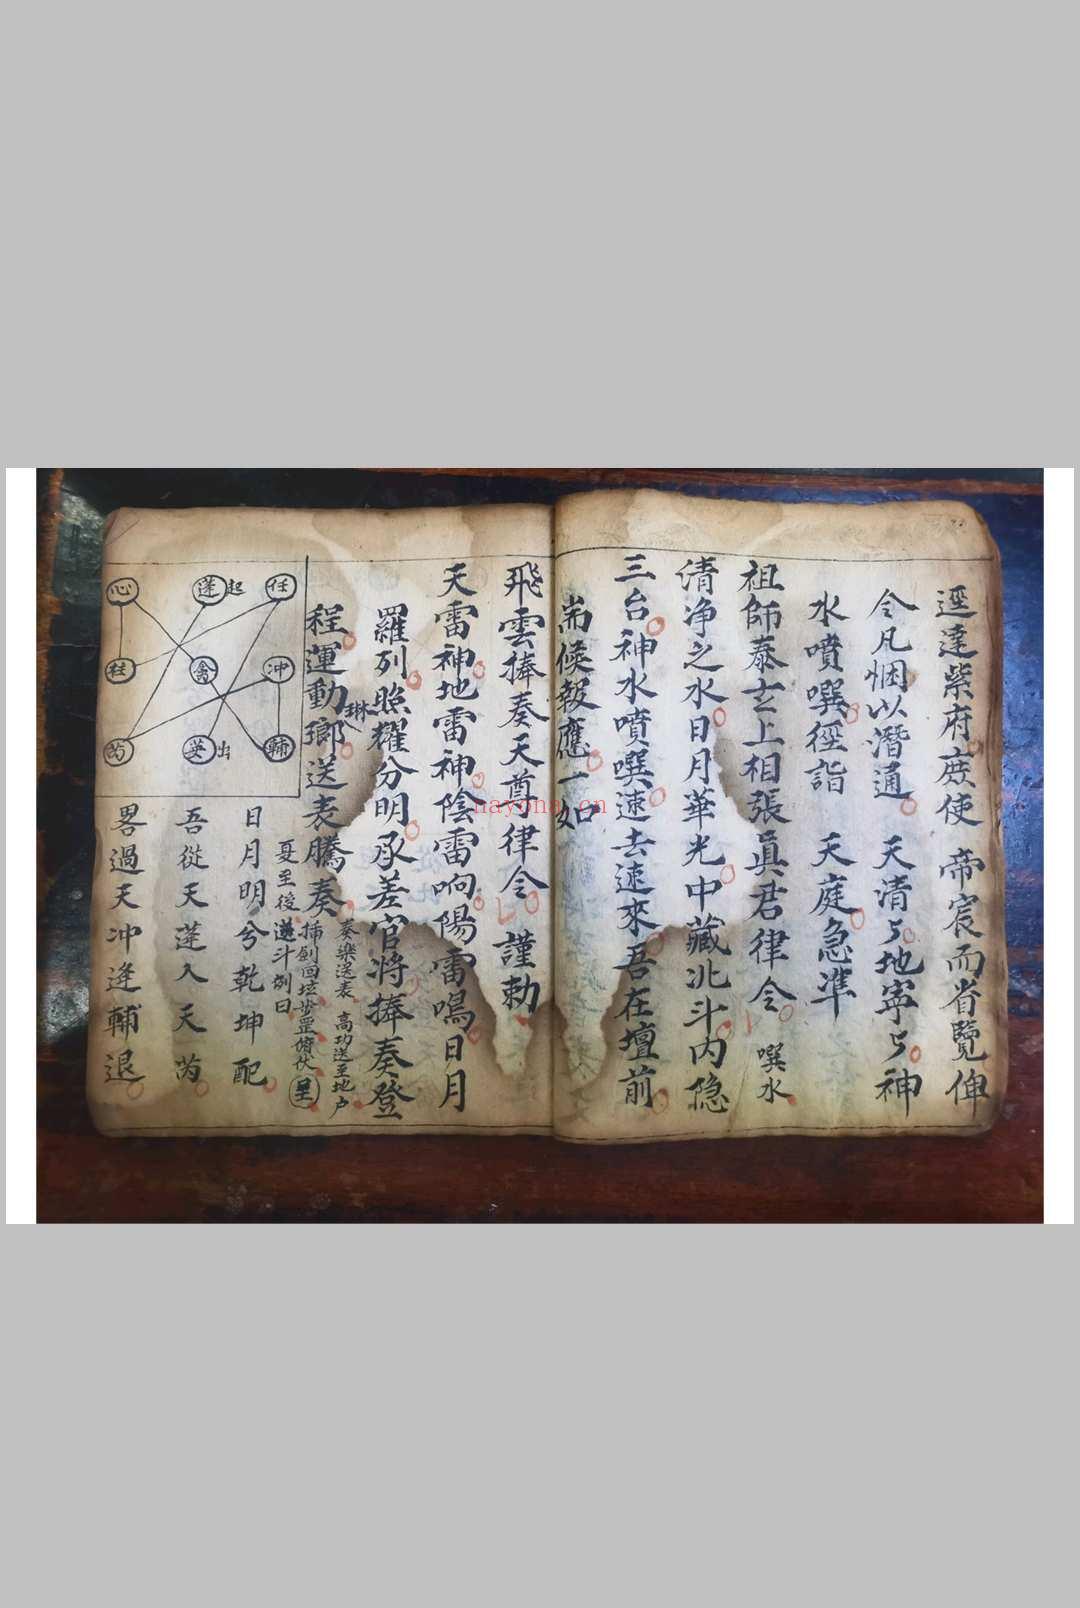 逕達紫府庶使 帝宸而省覽俾
令凡悃以潛通 天清〻地寧〻神
水噴噀徑詣 天庭急準
祖師泰玄上相張真君律令 噀水
清净之水日月華光中藏北斗内隐
三台神水噴噀速去速來吾在壇前
耑候報應一如
飛雲捧奏天尊律令 謹勅
天雷神地雷神陰雷响陽雷鳴日月
羅列照耀分明承差官將捧奏登
程運動瑯琳送表騰奏
奏樂送表 高功送至地户
插劍回坛步罡俯伏 呈
夏至後遊斗例曰
任 蓬起 心
冲 禽 柱
輔 英出 芮
日月明兮乾坤配
吾從天蓬入天芮
畧過天冲逢輔退
nayona.cn